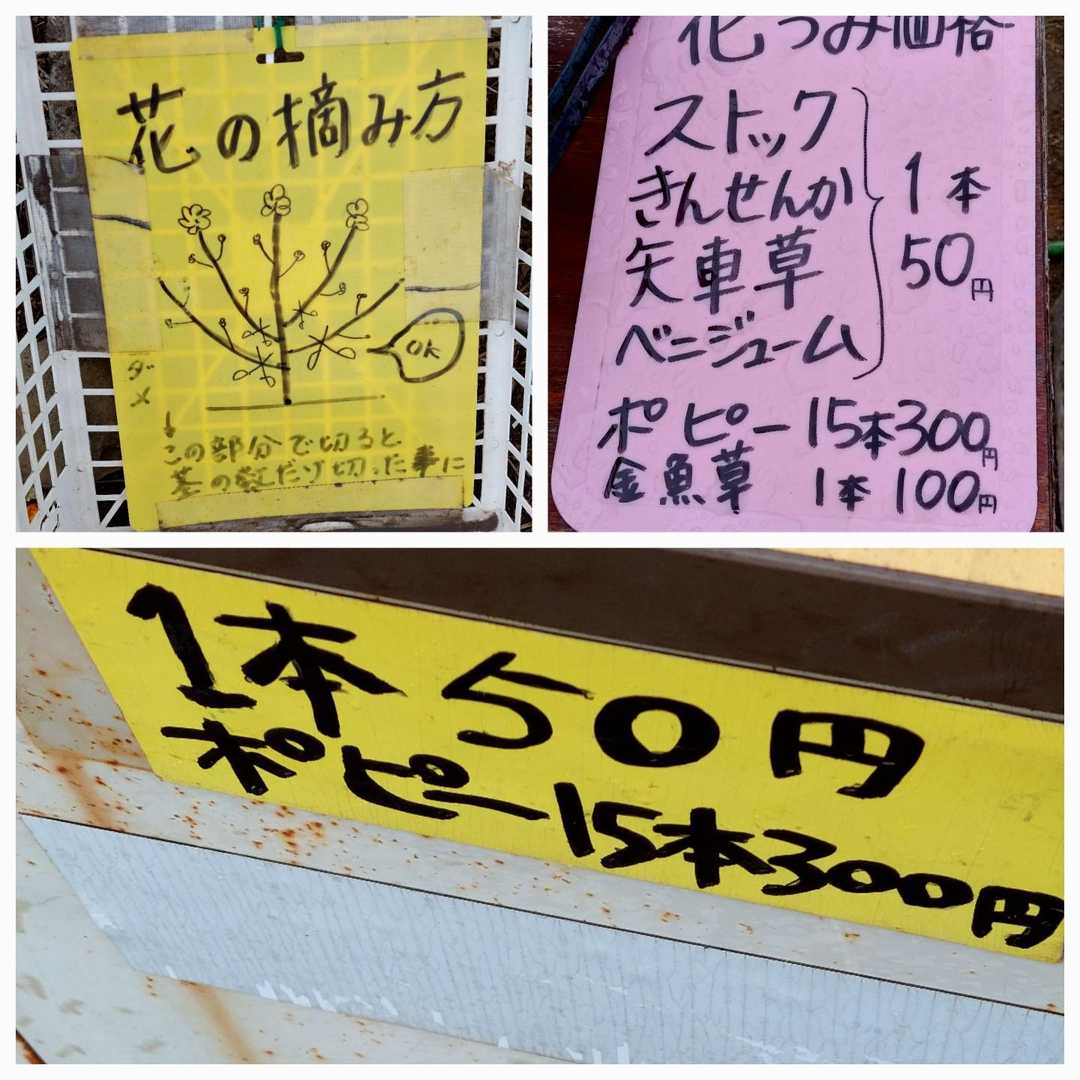 花の摘み方
OK
ダメ
↓
この部分で切ると
茎の数だけ切った事に
花つみ価格
ストック
きんせんか
矢車草
ベニジューム
1本
50円
ポピー 15本300円
金魚草 1本 100円
1本 50円
ポピー 15本300円